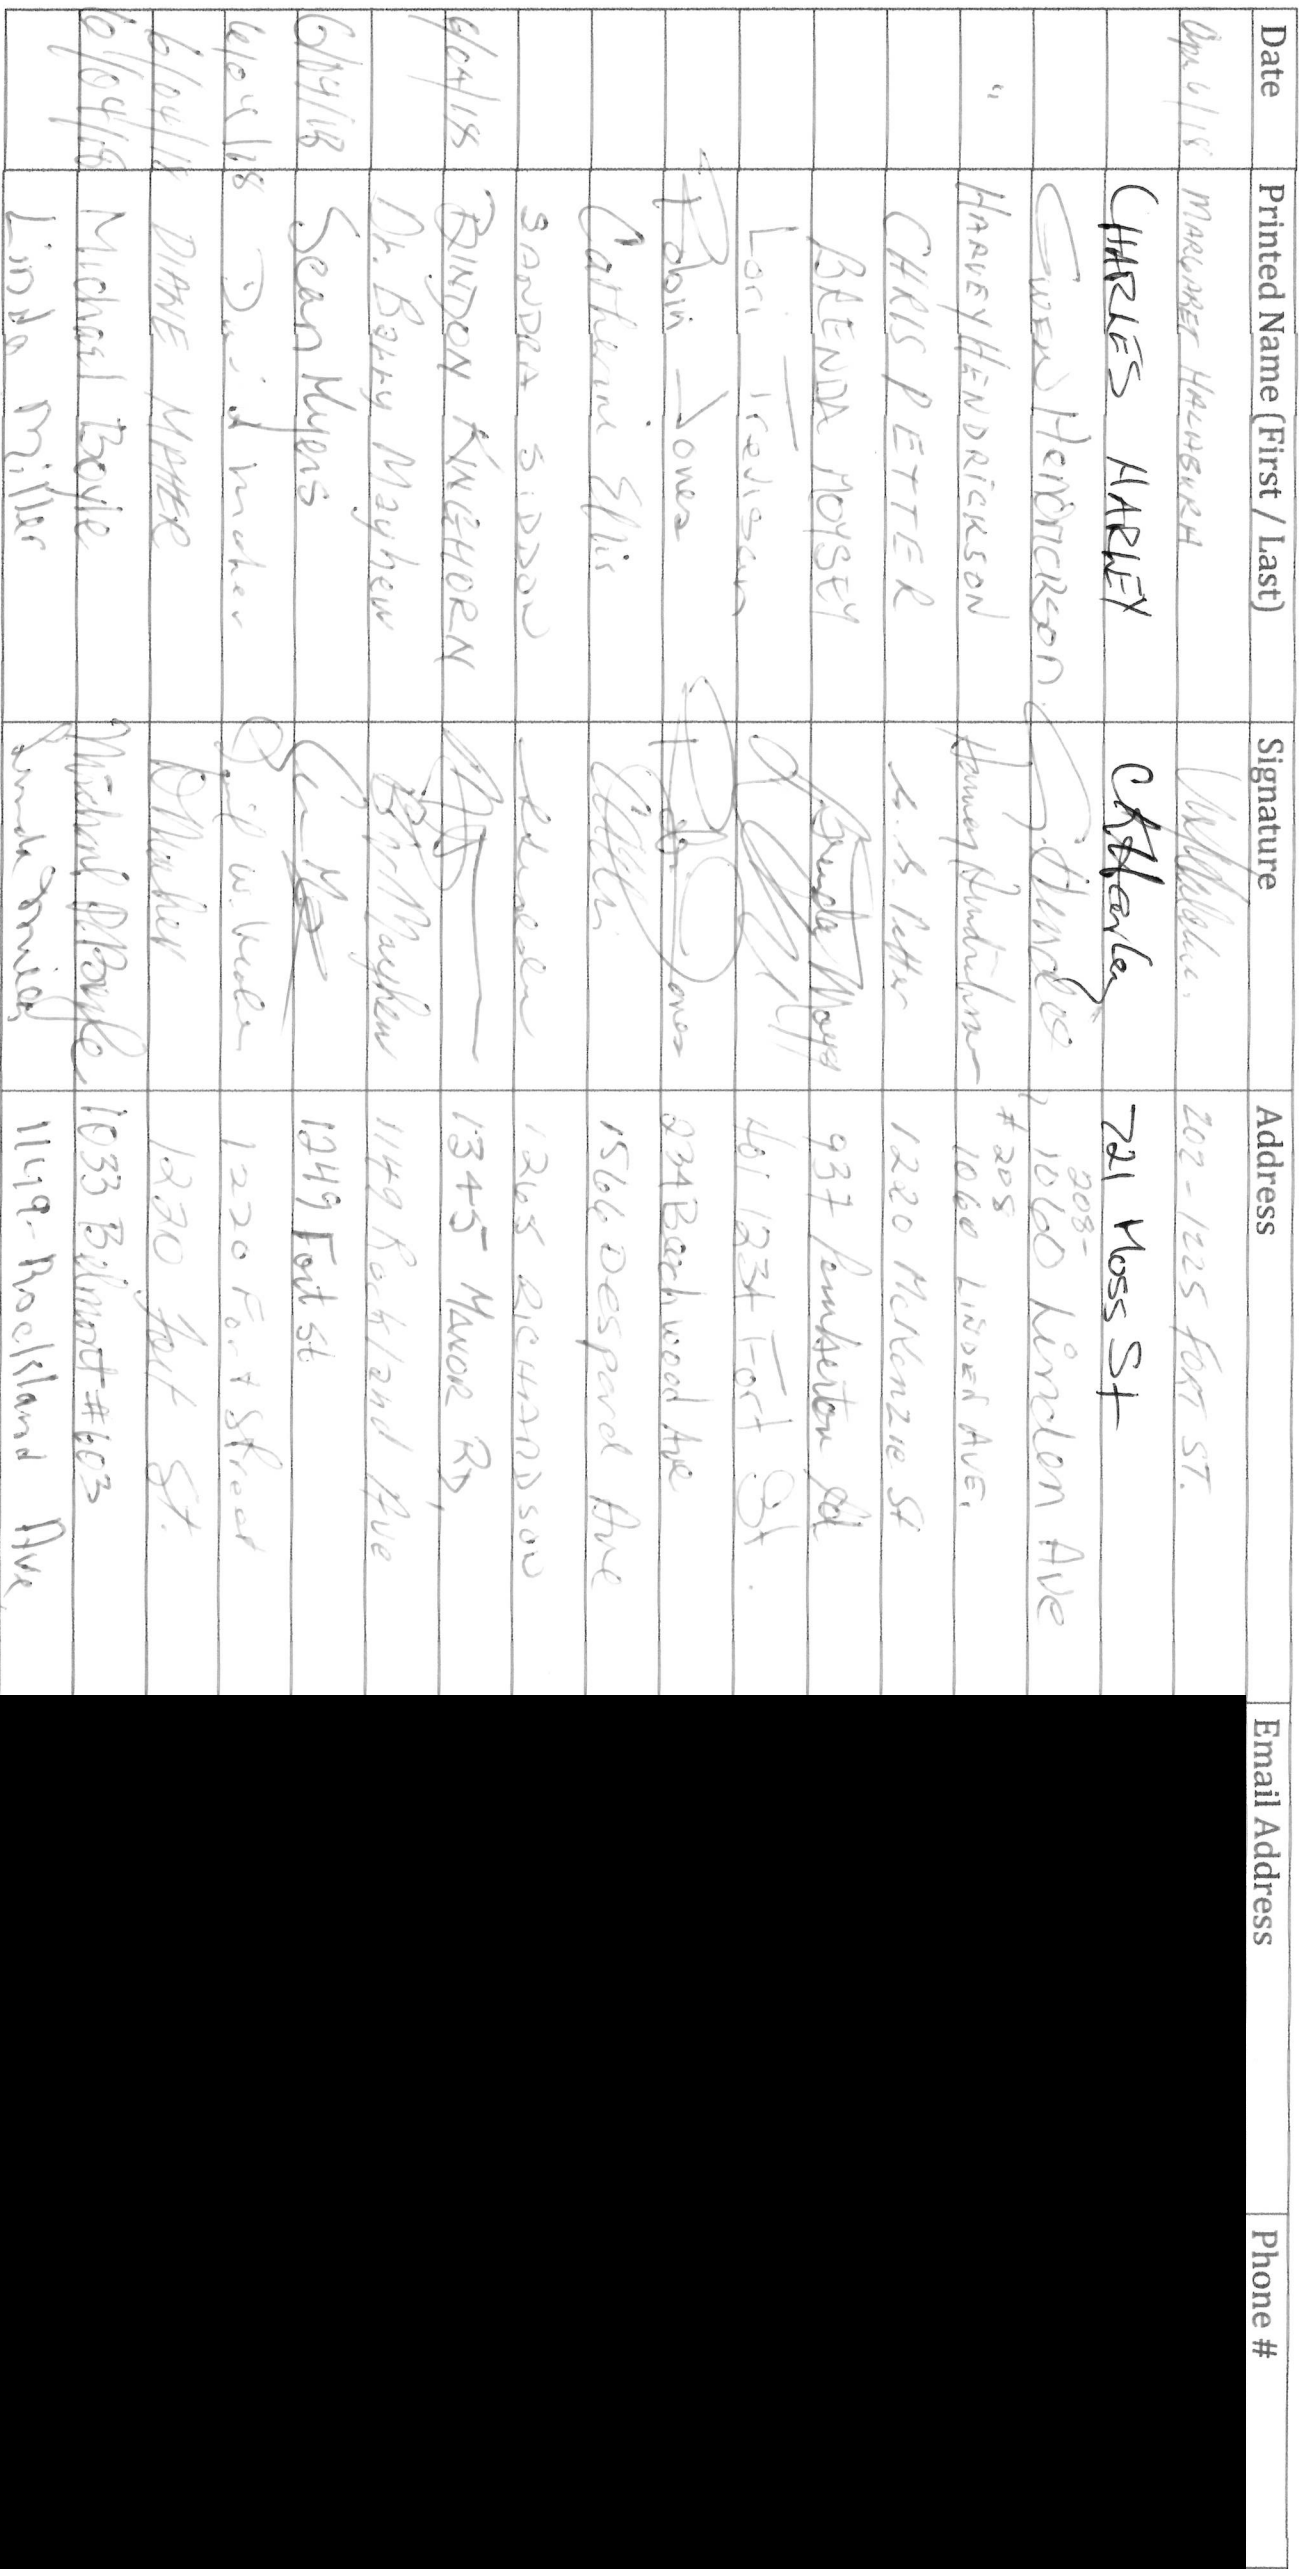 Date Printed Name (First / Last) Signature Address Email Address Phone #
MARGARET 202-1225 FORT ST.
CHARLES HARLEY CKHarley 721 Moss St
GWEN Hendrickson 208-1060 Linden Ave
" HARVEY HENDRICKSON Harvey Hendrickson #208 1060 LINDEN AVE.
CHRIS PETTER Petter 1220 McKenzie St
BRENDA MOYSEY Brenda 937 Pemberton Rd
Lori Trevisan 401 1234 Fort St.
Robin Jones Robin Jones 934 Beechwood Ave
Catherine Ellis 1566 Despard Ave
SANDRA SIDDON 1265 RICHARDSON
6/04/18 BINDON KINGHORN 1345 MANOR RD,
Dr. Barry Mayhew Mayhew 1149 Rockland Ave
6/04/18 Sean Myers 1249 Fort St
6/04/18 David maher 1220 Fort Street
6/04/18 DIANE MAHER DMaher 1220 Fort St.
6/04/18 Michael Boyle Michael Boyle 1033 Belmont #603
Linda Miller 1149-Rockland Ave,